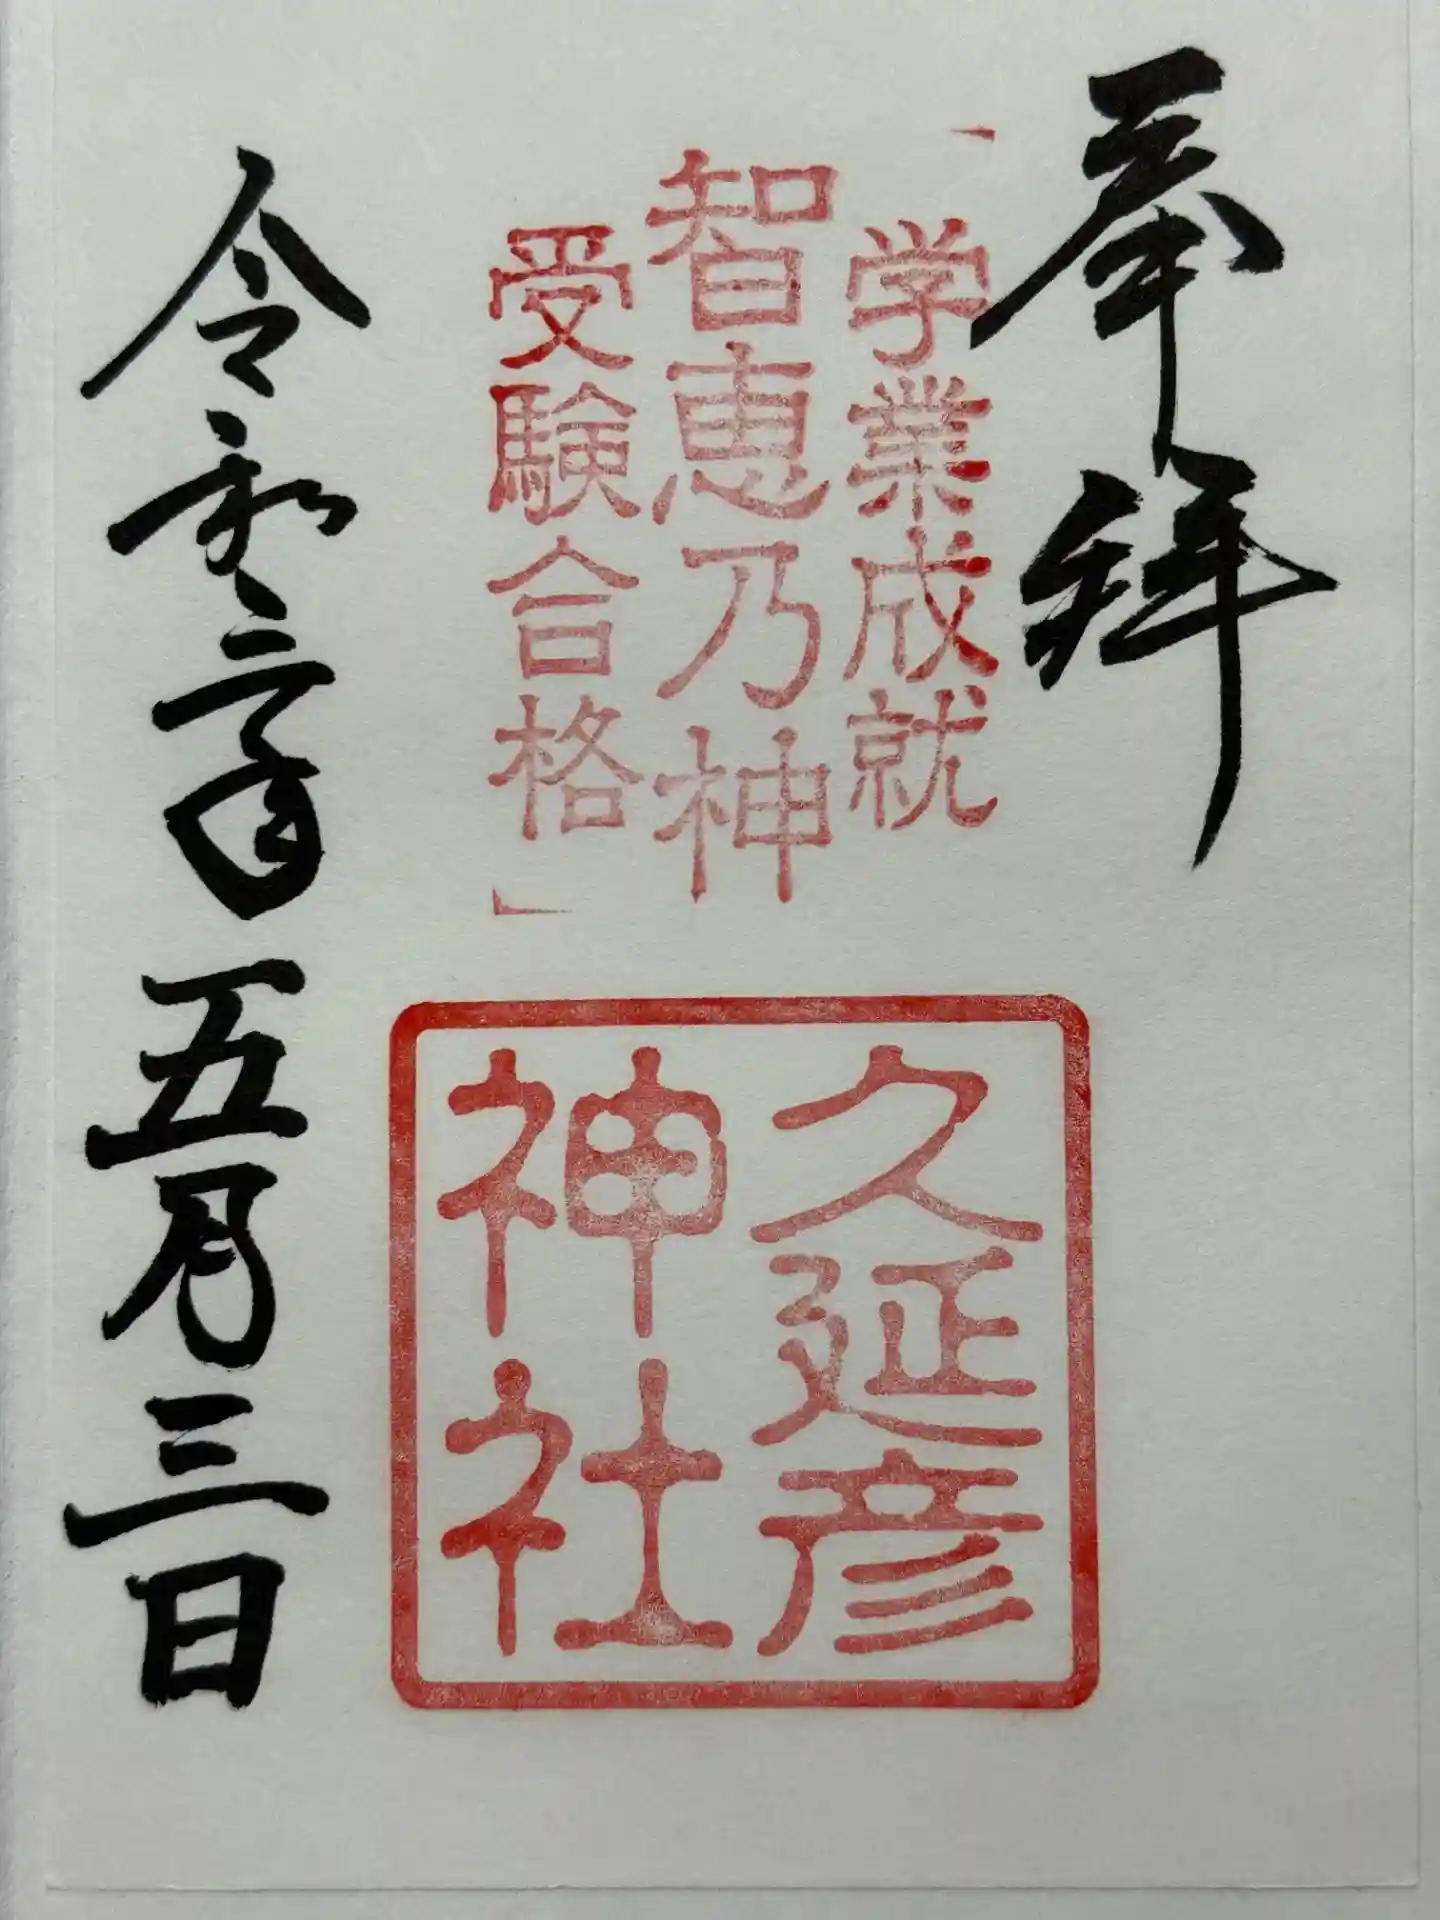 奉拝
「学業成就
智恵乃神
受験合格」
久延彦
神社
令和 年五月三日